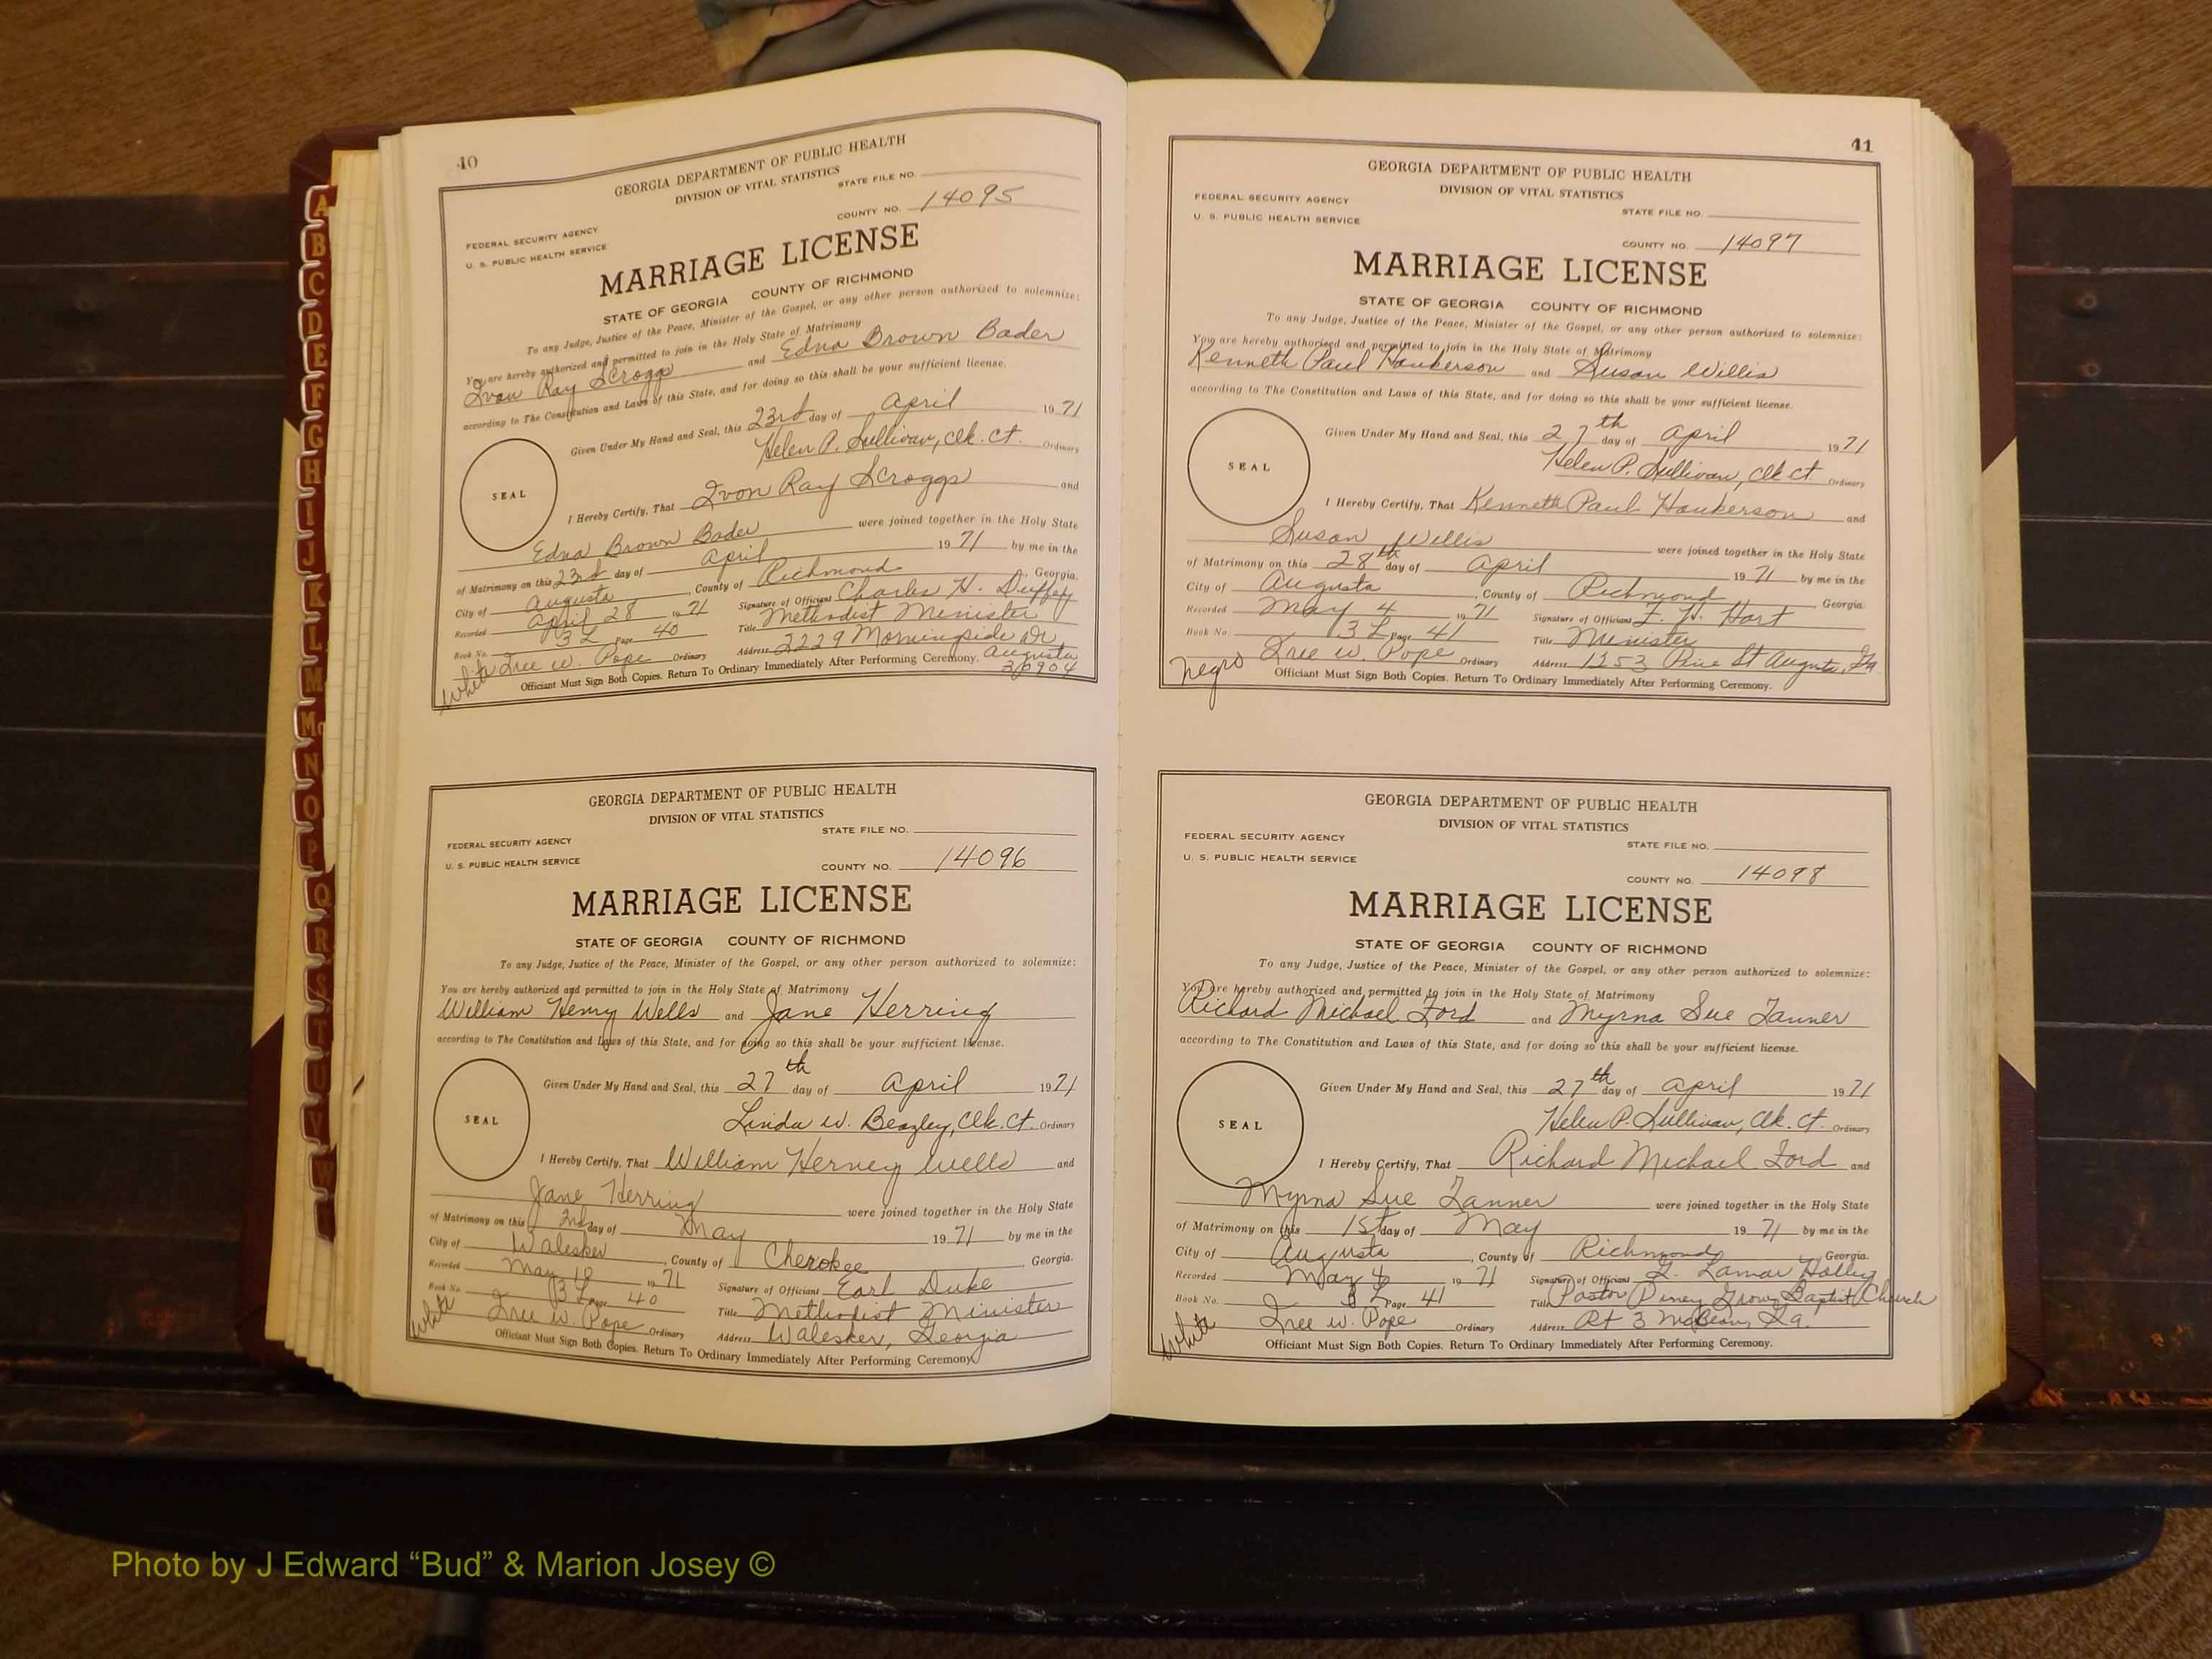 A
B
C
D
E
F
G
H
I
J
K
L
M
Mc
N
O
P
Q
R
S
T
U
V
W
40
GEORGIA DEPARTMENT OF PUBLIC HEALTH
DIVISION OF VITAL STATISTICS
STATE FILE NO.
COUNTY NO. 14095
FEDERAL SECURITY AGENCY
U. S. PUBLIC HEALTH SERVICE
MARRIAGE LICENSE
STATE OF GEORGIA COUNTY OF RICHMOND
To any Judge, Justice of the Peace, Minister of the Gospel, or any other person authorized to solemnize:
You are hereby authorized and permitted to join in the Holy State of Matrimony
Ivon Ray Scroggs and Edna Brown Bader
according to The Constitution and Laws of this State, and for doing so this shall be your sufficient license.
Given Under My Hand and Seal, this 23rd day of April 1971
Helen P. Sullivan, Clk. Ct. Ordinary
SEAL
I Hereby Certify, That Ivon Ray Scroggs and
Edna Brown Bader were joined together in the Holy State
of Matrimony on this 23rd day of April 1971 by me in the
City of Augusta, County of Richmond, Georgia.
Recorded April 28 1971 Signature of Officiant Charles H. Duffey
Book No. 3L Page 40 Title Methodist Minister
White Tree W. Pope Ordinary Address 2229 Morningside Dr Augusta
30904
Officiant Must Sign Both Copies. Return To Ordinary Immediately After Performing Ceremony.
GEORGIA DEPARTMENT OF PUBLIC HEALTH
DIVISION OF VITAL STATISTICS
STATE FILE NO.
FEDERAL SECURITY AGENCY
U. S. PUBLIC HEALTH SERVICE
COUNTY NO. 14096
MARRIAGE LICENSE
STATE OF GEORGIA COUNTY OF RICHMOND
To any Judge, Justice of the Peace, Minister of the Gospel, or any other person authorized to solemnize:
You are hereby authorized and permitted to join in the Holy State of Matrimony
William Henry Wells and Jane Herring
according to The Constitution and Laws of this State, and for doing so this shall be your sufficient license.
Given Under My Hand and Seal, this 27th day of April 1971
Linda W. Beazley, Clk. Ct. Ordinary
SEAL
I Hereby Certify, That William Herney Wells and
Jane Herring were joined together in the Holy State
of Matrimony on this 2nd day of May 1971 by me in the
City of Walesker, County of Cherokee, Georgia.
Recorded May 10 1971 Signature of Officiant Earl Duke
Book No. 3L Page 40 Title Methodist Minister
White Tree W. Pope Ordinary Address Walesker, Georgia
Officiant Must Sign Both Copies. Return To Ordinary Immediately After Performing Ceremony.
41
GEORGIA DEPARTMENT OF PUBLIC HEALTH
DIVISION OF VITAL STATISTICS
FEDERAL SECURITY AGENCY
U. S. PUBLIC HEALTH SERVICE
STATE FILE NO.
COUNTY NO. 14097
MARRIAGE LICENSE
STATE OF GEORGIA COUNTY OF RICHMOND
To any Judge, Justice of the Peace, Minister of the Gospel, or any other person authorized to solemnize:
You are hereby authorized and permitted to join in the Holy State of Matrimony
Kenneth Paul Hankerson and Susan Willis
according to The Constitution and Laws of this State, and for doing so this shall be your sufficient license.
Given Under My Hand and Seal, this 27th day of April 1971
Helen P. Sullivan, Clk Ct. Ordinary
SEAL
I Hereby Certify, That Kenneth Paul Hankerson and
Susan Willis were joined together in the Holy State
of Matrimony on this 28th day of April 1971 by me in the
City of Augusta, County of Richmond, Georgia.
Recorded May 4 1971 Signature of Officiant F. H. Hart
Book No. 3L Page 41 Title Minister
Negro Tree W. Pope Ordinary Address 1253 Pine St Augusta, Ga.
Officiant Must Sign Both Copies. Return To Ordinary Immediately After Performing Ceremony.
GEORGIA DEPARTMENT OF PUBLIC HEALTH
DIVISION OF VITAL STATISTICS
FEDERAL SECURITY AGENCY
U. S. PUBLIC HEALTH SERVICE
STATE FILE NO.
COUNTY NO. 14098
MARRIAGE LICENSE
STATE OF GEORGIA COUNTY OF RICHMOND
To any Judge, Justice of the Peace, Minister of the Gospel, or any other person authorized to solemnize:
You are hereby authorized and permitted to join in the Holy State of Matrimony
Richard Michael Ford and Myrna Sue Tanner
according to The Constitution and Laws of this State, and for doing so this shall be your sufficient license.
Given Under My Hand and Seal, this 27th day of April 1971
Helen P. Sullivan, Clk. Ct. Ordinary
SEAL
I Hereby Certify, That Richard Michael Ford and
Myrna Sue Tanner were joined together in the Holy State
of Matrimony on this 1st day of May 1971 by me in the
City of Augusta, County of Richmond, Georgia.
Recorded May 4 1971 Signature of Officiant Lamar
Book No. 3L Page 41 Title Pastor Piney Grove Baptist Church
White Tree W. Pope Ordinary Address Rt 3 McBean, Ga.
Officiant Must Sign Both Copies. Return To Ordinary Immediately After Performing Ceremony.
Photo by J Edward “Bud” & Marion Josey ©